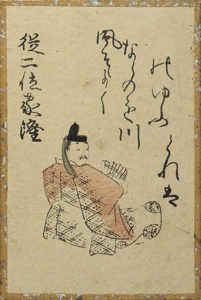 從二位家隆
風そよく
ならのを川
のゆふくれは